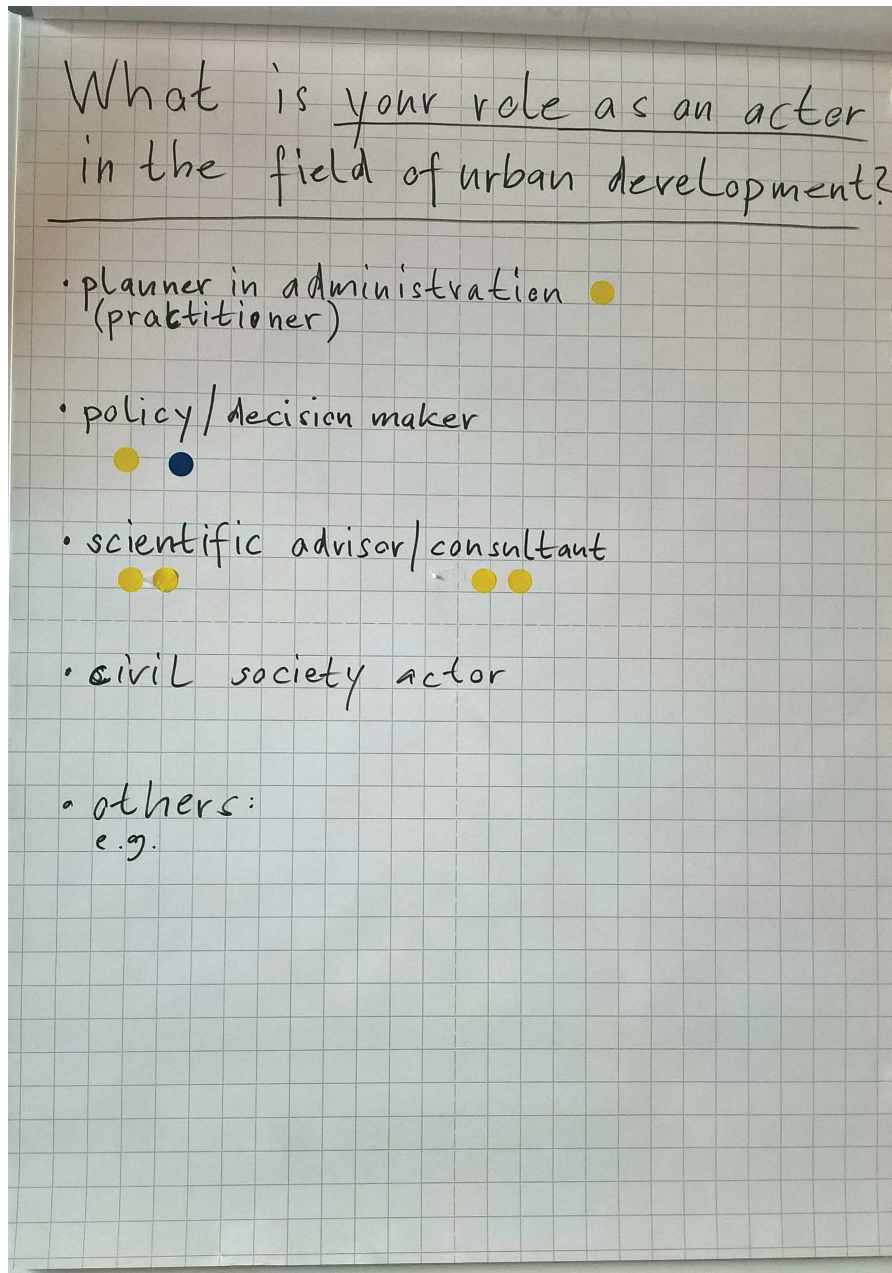 What is your role as an actor
in the field of urban development?
· planner in administration
(praktitioner)
· policy/decision maker
· scientific advisor/consultant
· civil society actor
· others:
e.g.